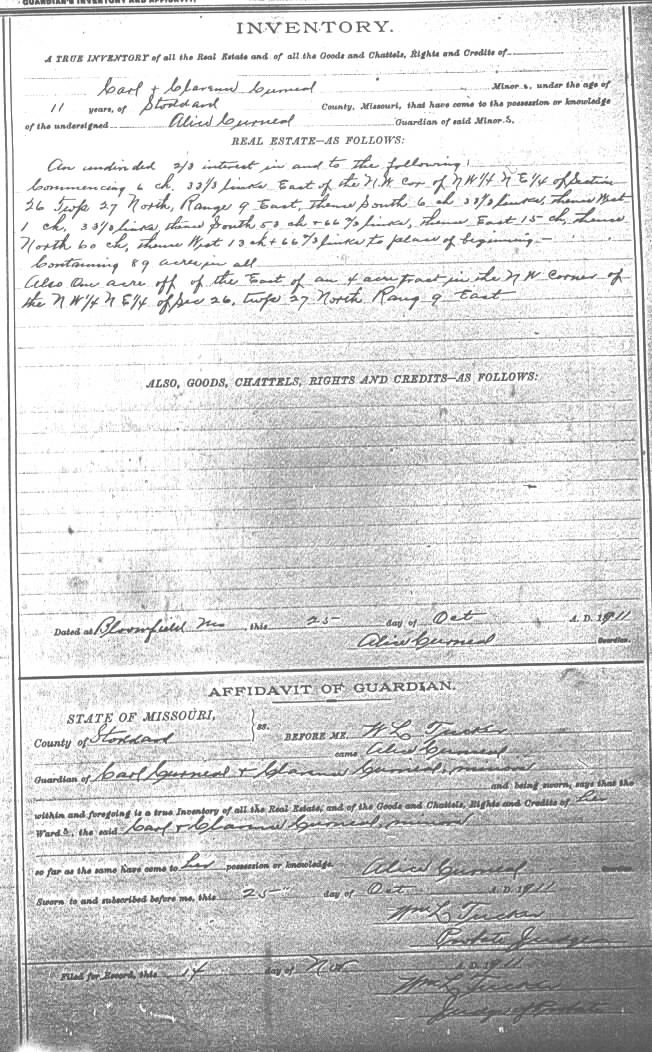 GUARDIAN'S INVENTORY AND AFFIDAVIT.
INVENTORY.
A TRUE INVENTORY of all the Real Estate and of all the Goods and Chattels, Rights and Credits of
Carl & Clarence Curneal Minors, under the age of
11 years, of Stoddard County, Missouri, that have come to the possession or knowledge
of the undersigned Alice Curneal Guardian of said Minors.
REAL ESTATE—AS FOLLOWS:
An undivided 2/3 interest in and to the following;
Commencing 6 ch. 33 1/3 links East of the N.W Cor of NW 1/4 N E 1/4 of Section
26 Twp 27 North, Range 9 East, thence South 6 ch 33 1/3 links, thence West
1 ch. 33 1/3 links, thence South 53 ch + 66 2/3 links, thence East 15 ch, thence
North 60 ch, thence West 13 ch + 66 2/3 links to place of beginning —
Containing 89 acres in all
Also One acre off of the East of an 4 acre tract in the N W Corner of
the N W 1/4 N E 1/4 of Sec 26, twp 27 North Rang 9 East
ALSO, GOODS, CHATTELS, RIGHTS AND CREDITS—AS FOLLOWS:
Dated at Bloomfield Mo, this 25 day of Oct A. D. 1911
Alice Curneal Guardian.
AFFIDAVIT OF GUARDIAN.
STATE OF MISSOURI,
County of Stoddard ss. BEFORE ME, W L Tucker
came Alice Curneal
Guardian of Carl Curneal & Clarence Curneal, minors
and being sworn, says that the
within and foregoing is a true Inventory of all the Real Estate, and of the Goods and Chattels, Rights and Credits of her
Wards, the said Carl & Clarence Curneal, minors
so far as the same have come to her possession or knowledge. Alice Curneal Guardian
Sworn to and subscribed before me, this 25" day of Oct. A. D. 1911
Wm L Tucker
Probate Judge
Filed for Record, this 14 day of Nov A. D. 1911
Wm L Tucker
Judge of Probate